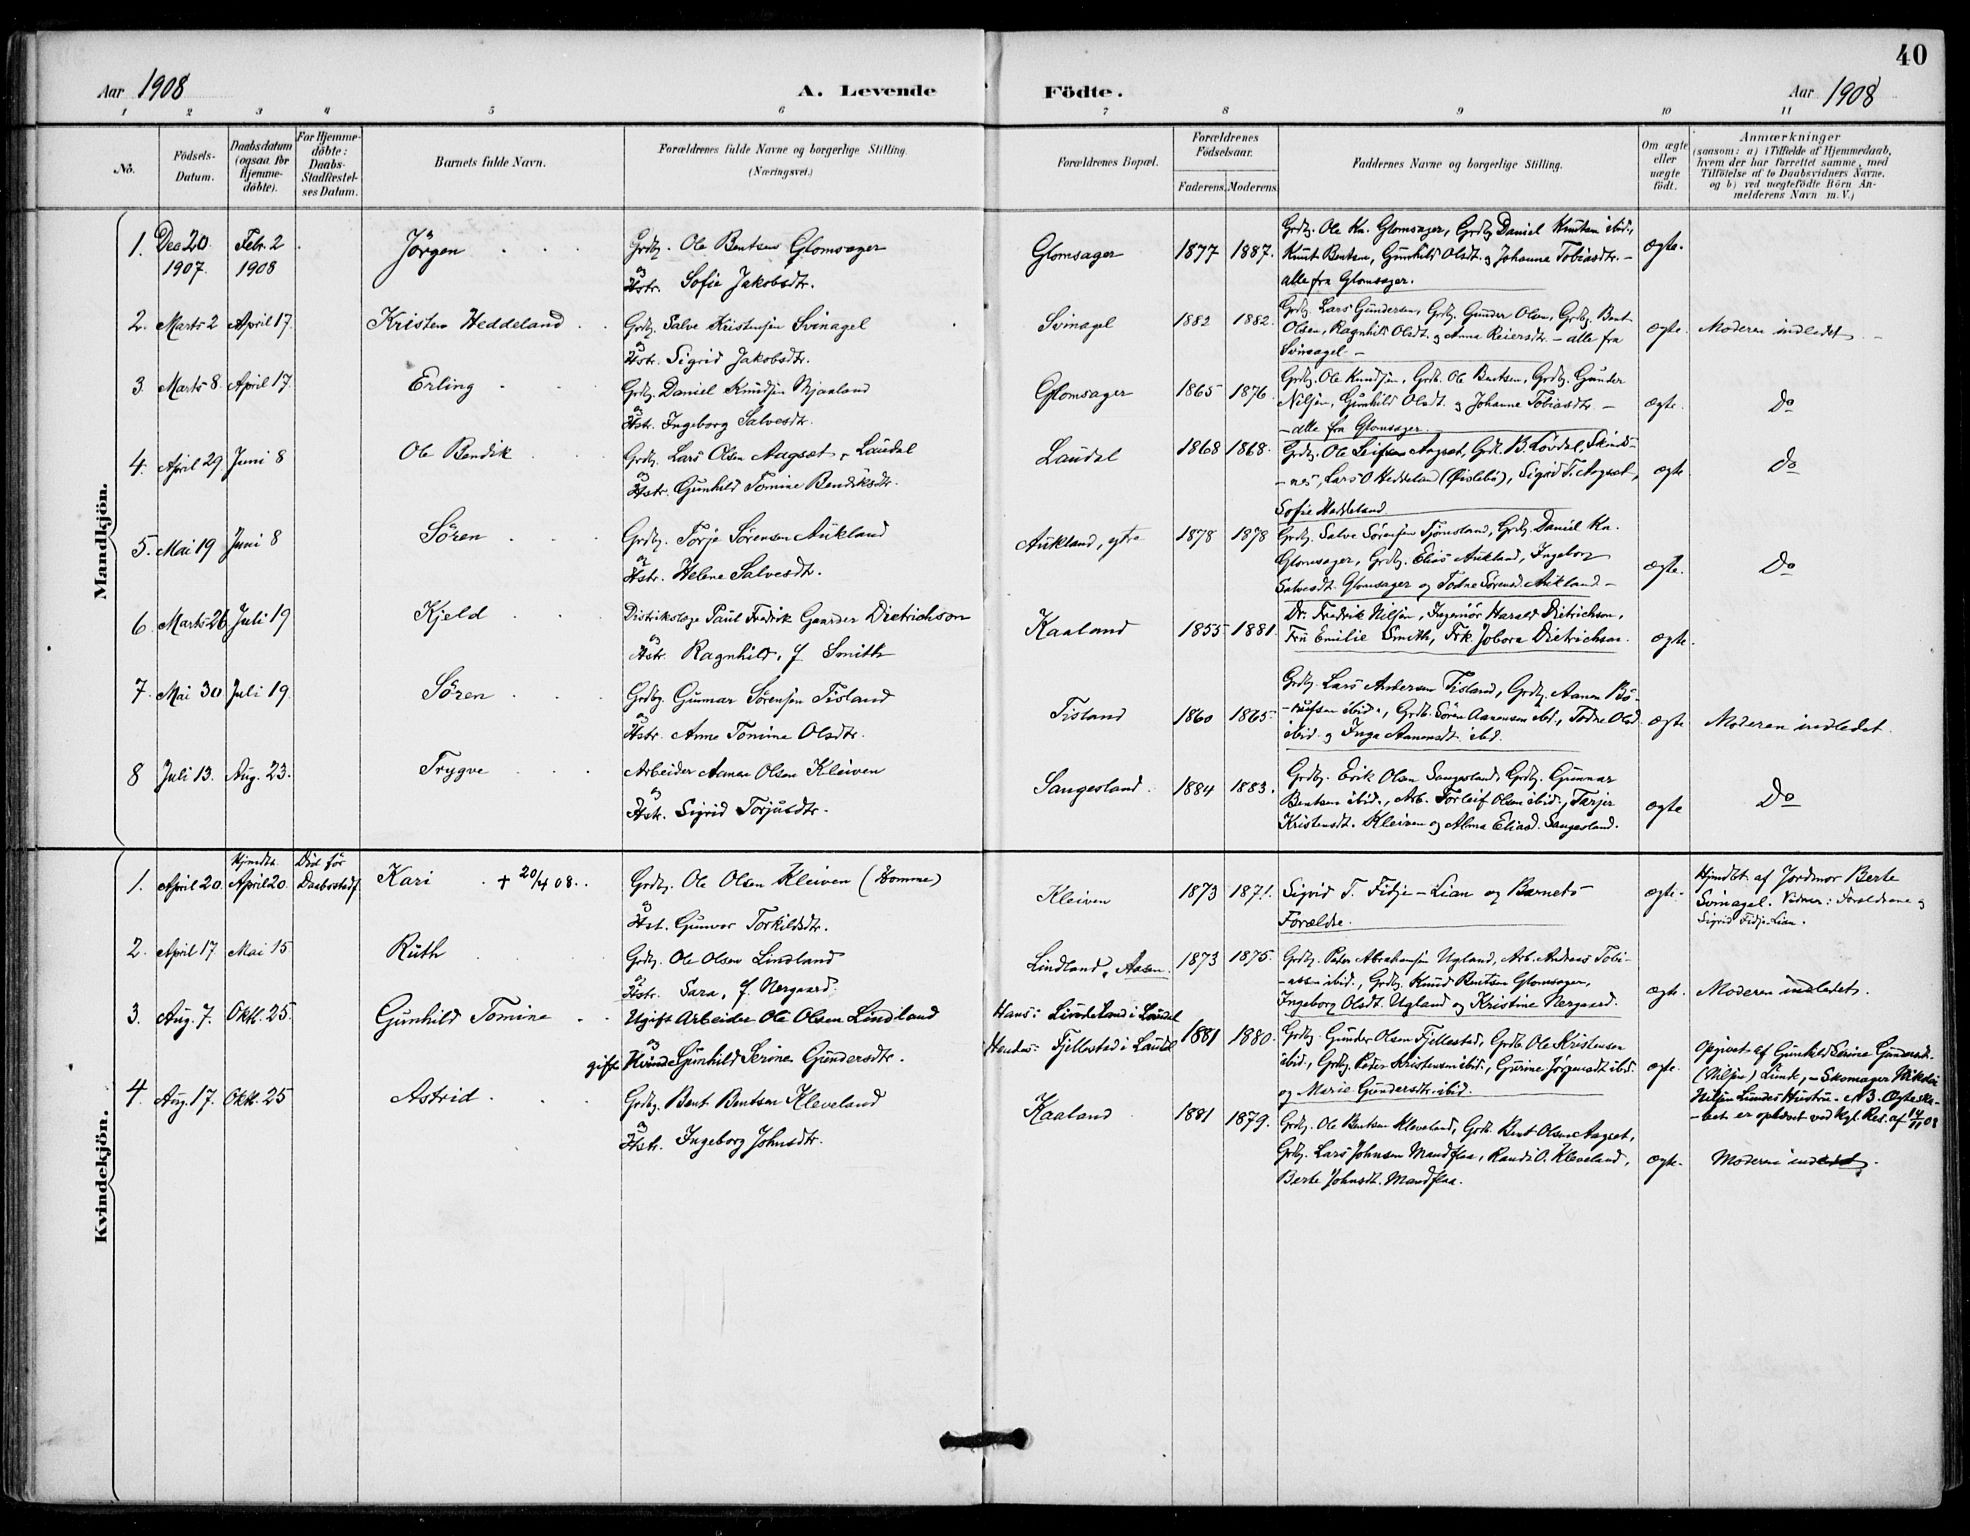 40
Aar 1908
A. Levende Födte.
Aar 1908
1 2 3 4 5 6 7 8 9 10 11
No.
Födsels-Datum.
Daabsdatum (ogsaa for Hjemme-döbte).
For Hjemme-döbte: Daabs-Stadfæstel-ses Datum.
Barnets fulde Navn.
Forældrenes fulde Navne og borgerlige Stilling.
(Næringsvei.)
Forældrenes Bopæl.
Forældrenes Födselsaar.
Faderens. Moderens.
Faddernes Navne og borgerlige Stilling.
Om ægte eller uægte födt.
Anmærkninger
(saasom: a) i Tilfælde af Hjemmedaab,
hvem der har forrettet samme, med
Tilföielse af to Daabsvidners Navne.
og b) ved uægtefödte Börn An-
melderens Navn m. V.)
Mandkjön.
1. Dec 20. 1907. Febr. 2 1908 Jörgen
Grdbr. Ole Bentsen Glomsager
og Hstr. Sofie Jakobsdtr.
Glomsager 1877 1887.
Grdbr. Ole Kn. Glomsager, Grdbr Daniel Knutsen ibid.,
Knut Bentsen, Gunhild Olsdt. og Johanna Tobiasdtr. -
alle fra Glomsager.
ægte.
2. Marts 2 April 17. Kristen Heddeland
Grdbr. Salve Kristensen Svinagel
og Hstr. Sigrid Jakobsdtr.
Svinagel 1882 1882.
Grdbr. Lars Gundersen, Grdbr. Gunder Olsen, Grdbr. Bent
Olsen, Ragnhild Olsdt. og Anna Reiersdtr. - alle fra
Svinagel. -
ægte. Moderen indledet.
3. Marts 8. April 17. Erling
Grdbr. Daniel Knudsen Bjaaland
og Hstr. Ingeborg Salvesdtr.
Glomsager 1865 1876.
Grdbr. Ole Knudsen, Grdb. Ole Bentsen, Grdbr. Gunder
Nilsen, Gunhild Olsdt. og Johanne Tobiasdtr. -
- alle fra Glomsager.
ægte. Do
4. April 29 Juni 8 Ole Bendik
Grdbr. Lars Olsen Aagset, Laudal
og Hstr. Gunhild Tomine Bendiksdtr.
Laudal 1868 1868.
Grdbr. Ole Leifsen Aagset, Grdb. B. Lösdal, Skinds-
-nes, Lars O Heddeland (Øislebö), Sigrid T. Aagset,
Sofie Heddeland
ægte Do
5. Mai 19 Juni 8 Sören
Grdbr. Torje Sörensen Aukland
og Hstr. Helene Salvesdtr.
Aukland, ytre 1878 1878
Grdbr. Salve Sörensen Tjomsland, Grdbr. Daniel Kn.
Glomsager, Grdbr. Elias Aukland, Ingeborg
Salvesdt. Glomsager og Todne Sörensd. Aukland -
ægte. Do
6. Marts 26 Juli 19 Kjeld
Distriktslæge Paul Fredrik Gaarder Dietrichson
og Hstr. Ragnhild, f. Smith
Kaaland 1855 1881.
Dr. Fredrik Nilsen, Ingeniör Harald Dietrichson,
Fru Emilie Smith, Frk. Jobora Dietrichson.
ægte.
7. Mai 30 Juli 19. Sören
Grdbr. Gunnar Sörensen Tisland
og Hstr. Anne Tomine Olsdtr.
Tisland 1860 1865
Grdbr. Lars Andersen Tisland, Grdbr. Aanen Bö-
-rufsen ibid., Grdb. Sören Aanensen ibd, Todne Olsd.
ibid. og Inga Aanensdt. ibd.
ægte Moderen indledet.
8 Juli 13. Aug. 23. Trygve
Arbeider Aanen Olsen Kleiven
og Hstr. Sigrid Torjusdtr.
Sangesland. 1884 1883.
Grdbr. Erik Olsen Sangesland, Grdbr. Gunnar
Bentsen ibid., Arb. Torleif Olsen ibid., Tarjer
Kristensdt. Kleiven og Alma Eliasd. Sangesland.
ægte Do
Kvindekjön.
1. April 20. Hjmdbt. April 20. Död för Daabsstadf. Kari + 20/4 08.
Grdbr. Ole Olsen Kleiven (Homme)
og Hst. Gunvor Torkildsdtr.
Kleiven 1873 1871.
Sigrid T. Fidje-Lian og Barnets
Forældre.
ægte.
Hjmdbt. af Jordmor Berte
Svinagel. Vidner: Forældrene og
Sigrid Fidje-Lian.
2. April 17 Mai 15 Ruth
Grdbr. Ole Olsen Lindland
og Hstr. Sara, f. Nergaard.
Lindland, Aasen. 1873 1875.
Grdbr. Peter Abrahamsen Ugland, Arb. Andreas Tobi-
-assen ibid., Grdbr. Knud Bentsen Glomsager,
Ingeborg Olsdt. Ugland og Kristine Nergaard.
ægte. Moderen indledet.
3. Aug. 7. Oktb. 25. Gunhild Tomine
Ugift Arbeider Ole Olsen Lindland
og gift Kvinde Gunhild Serine Gundersdtr.
Hans: Lindeland i Laudal
Hendes: Fjellestad i Laudal 1881 1880.
Grdbr. Gunder Olsen Fjellestad, Grdb. Ole Kristensen
ibid., Grdbr. Peder Kristensen ibid., Gurine Jörgensdt ibid.
og Marie Gundersdtr. ibid.
ægte.
Opgivet af Gunhild Serine Gundersdt.
(Nilsen) Lunde, - Skomager Nikolai
Nilsen Lundes Hustru. - NB. Ægteska-
-bet er oplövet ved Kgl. Res. af 14/11 08
4. Aug. 17. Oktb. 25 Astrid
Grdbr. Bent Bentsen Kleveland
og Hstr. Ingeborg Johnsdtr.
Kaaland 1881 1879.
Grdbr. Ole Bentsen Kleveland, Grdb. Bent Olsen Aagset,
Grdbr. Lars Johnsen Mandflaa, Randi O. Kleveland,
Berte Johnsdt. Mandflaa.
ægte. Moderen indledet.